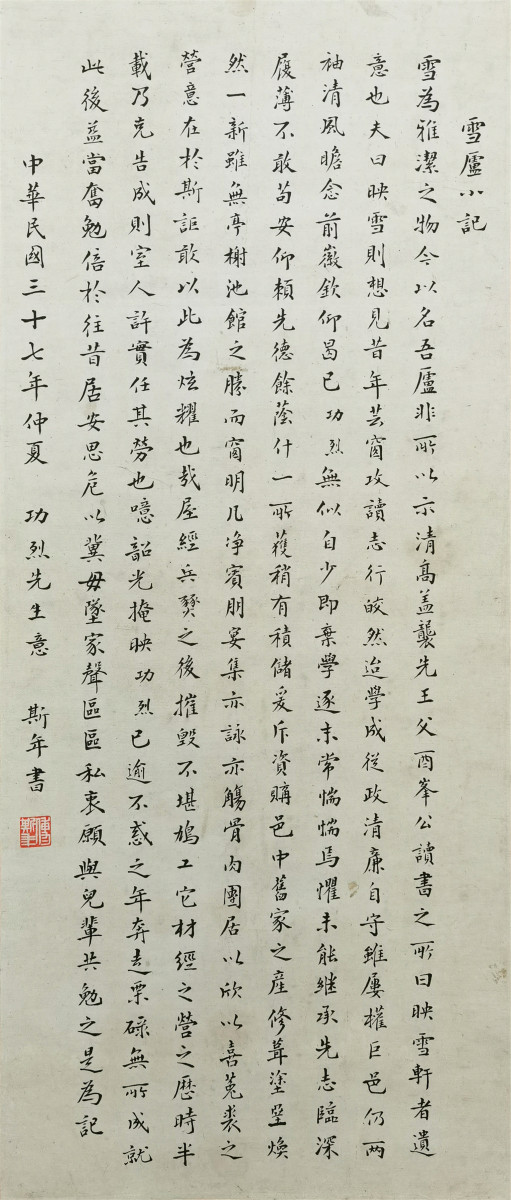 雪廬小記
雪為雅潔之物今以名吾廬非所以示清高盖襲先王父酉峯公讀書之所曰映雪軒者遺
意也夫曰映雪則想見昔年芸窗攻讀志行皎然迨學成從政清廉自守雖屢權巨邑仍两
袖清風瞻念前徽欽仰曷已功烈無似自少即棄學逐末常惴惴焉懼未能継承先志臨深
履薄不敢苟安仰賴先德餘蔭什一所獲稍有積儲爰斥資購邑中舊家之產修葺塗塈煥
然一新雖無亭榭池館之勝而窗明几净賓朋宴集亦詠亦觴骨肉團居以欣以喜菟裘之
營意在於斯詎敢以此為炫耀也哉屋經兵燹之後摧毀不堪鳩工它材經之營之歷時半
載乃克告成則室人許實任其勞也噫韶光掩映功烈已逾不惑之年奔走栗碌無所成就
此後益當奮勉倍於往昔居安思危以冀毋墜家聲區區私衷願與兒輩共勉之是為記
中華民國三十七年仲夏 功烈先生意 斯年書
傅斯年